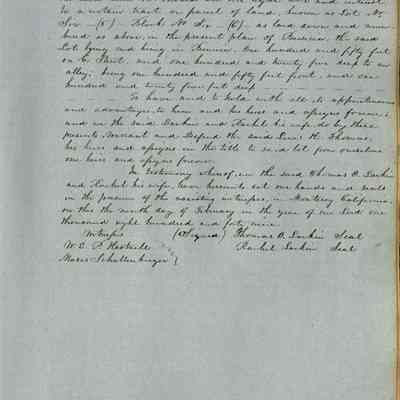 to a certain tract or parcel of land, known as Lot No
Six (6) Block No Six (6) as laid down and num
bered as above, in the present plan of Benicia, the said
Lot lying and being in Benicia, One hundred and fifty feet
on C Street, and one hundred and twenty five deep to an
alley; being one hundred and fifty feet front and one
hundred and twenty five feet deep
To have and to hold with all its appurtenances
and advantages to him and his heirs and assigns forever,
and we the said Larkin and Rachel his wife do by these
presents warrant and defend the said H. Thomas,
his heirs and assigns in the title to said lot from ourselves
our heirs and assigns forever.
In testimony whereof, we the said Thomas O. Larkin
and Rachel his wife, have hereunto set our hands and seals
in the presence of the assisting witnesses, in Monterey California
on this the ninth day of February in the year of our Lord one
thousand eight hundred and forty nine.
Witness (Signed) Thomas O. Larkin Seal
W. C. P. Hartnell Rachel Larkin Seal
Moses Schallenberger